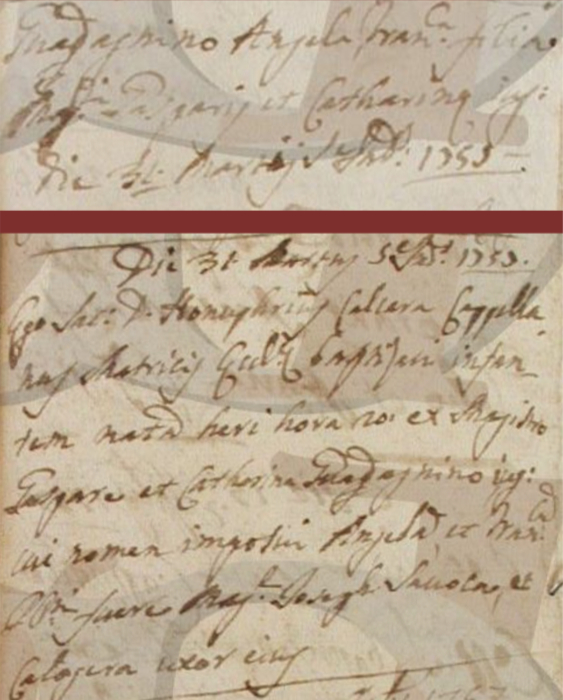 Guadagnino Angela Fran.ca filia
Mag.ri Gasparis et Catharinę jug:
Die 31 Martij S.e Ind: 1753
Die 31 Martij S.e Ind: 1753.
Ego Sac: D. Honuphrius Calcara Cappella
nus Matricis Eccl.ę baptizavi infan_
tem natā heri hora 20: ex Magistro
Gaspare et Catherina Guadagnino jug:
cui nomen imposui Angelā et Fran.cā
P.P.ni fuere Mag.r Joseph et
Calogera uxor eius